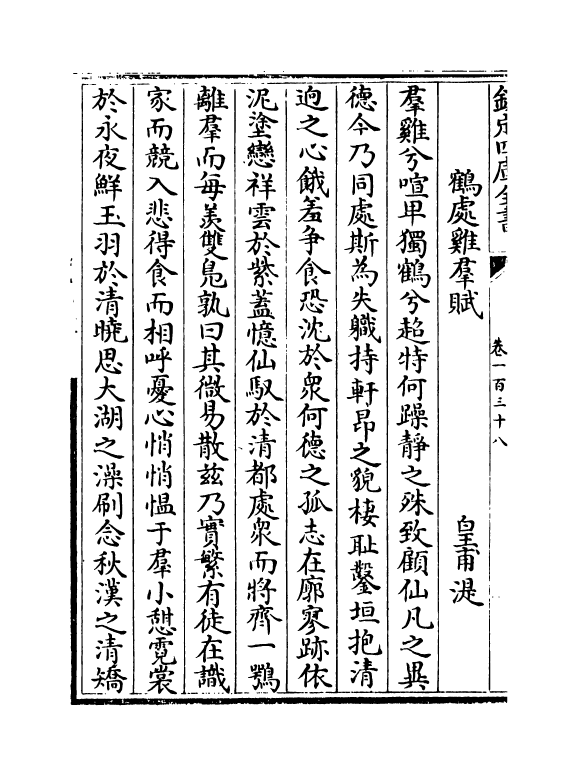 欽定四庫全書
卷一百三十八
鶴處雞羣賦
皇甫湜
羣雞兮喧卑獨鶴兮超特何躁靜之殊致顧仙凡之異
德今乃同處斯為失職持軒昂之貌棲恥鑿垣抱清
迥之心餓羞争食恐沈於衆何德之孤志在廓寥跡依
泥塗戀祥雲於紫蓋憶仙馭於清都處衆而將齊一鶚
離羣而每羨雙鳧孰曰其㣲易散兹乃實繁有徒在識
家而競入悲得食而相呼憂心悄悄愠于羣小憇霓裳
於永夜鮮玉羽於清曉思大湖之澡刷念秋漢之清矯